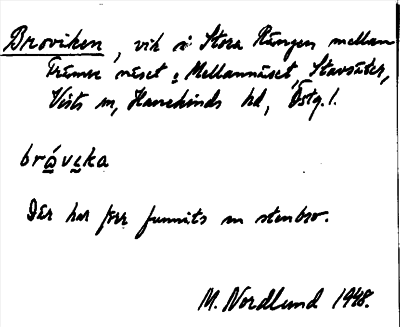 Broviken, vik i Stora Rängen mellan
Främre näset, Mellannäset, Stavsäter,
Vists sn, Hanekinds hd, Östg. l.
bråvıka
Där har förr funnits en stenbro.
M. Nordlund 1948.